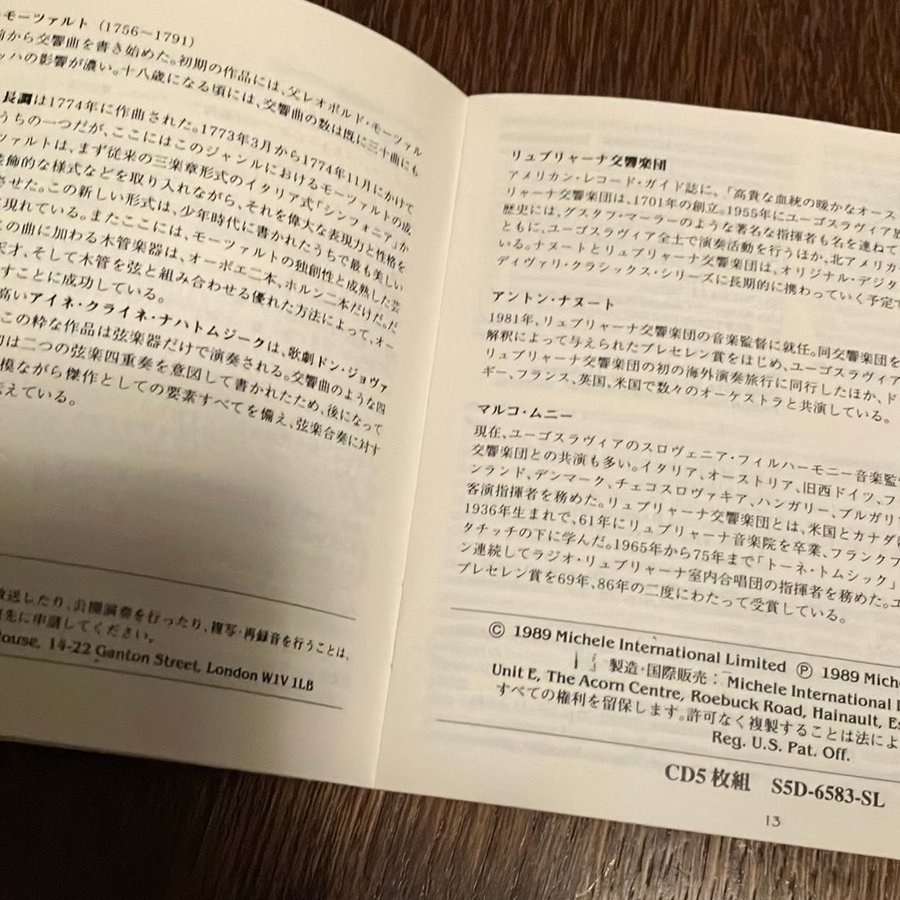 モーツァルト（1756〜1791）
前から交響曲を書き始めた。初期の作品には、父レオポルド・モーツァル
ッハの影響が濃い。十八歳になる頃には、交響曲の数は既に三十曲にも
長調は1774年に作曲された。1773年3月から1774年11月にかけて
うちの一つだが、ここにはこのジャンルにおけるモーツァルトの成
ツァルトは、まず従来の三楽章形式のイタリア式「シンフォニア」か
装飾的な様式などを取り入れながら、それを偉大な表現力と性格を
させた。この新しい形式は、少年時代に書かれたうちで最も美しい
現れている。またここには、モーツァルトの独創性と成熟した芸
この曲に加わる木管楽器は、オーボエ二本、ホルン二本だけだ。だ
天才、そして木管を弦と組み合わせる優れた方法によって、オー
すことに成功している。
高いアイネ・クライネ・ナハトムジークは、歌劇ドン・ジョヴァ
この粋な作品は弦楽器だけで演奏される。交響曲のような四
初は二つの弦楽四重奏を意図して書かれたため、後になって
模ながら傑作としての要素すべてを備え、弦楽合奏に対す
伝えている。
放送したり、公開演奏を行ったり、複写・再録音を行うことは、
先に申請してください。
House, 14-22 Ganton Street, London W1V 1LB
リュブリャーナ交響楽団
アメリカン・レコード・ガイド誌に、「高貴な血統の暖かなオース
リャーナ交響楽団は、1701年の創立。1955年にユーゴスラヴィア放
歴史には、グスタフ・マーラーのような著名な指揮者も名を連ねて
ともに、ユーゴスラヴィア全土で演奏活動を行うほか、北アメリカ
いる。ナヌートとリュブリャーナ交響楽団は、オリジナル・デジタ
ディヴァリ・クラシックス・シリーズに長期的に携わっていく予定で
アントン・ナヌート
1981年、リュブリャーナ交響楽団の音楽監督に就任。同交響楽団を
解釈によって与えられたプレセレン賞をはじめ、ユーゴスラヴィア
リュブリャーナ交響楽団の初の海外演奏旅行に同行したほか、ド
ギー、フランス、英国、米国で数々のオーケストラと共演している。
マルコ・ムニー
現在、ユーゴスラヴィアのスロヴェニア・フィルハーモニー音楽監
交響楽団との共演も多い。イタリア、オーストリア、旧西ドイツ、フ
ンランド、デンマーク、チェコスロヴァキア、ハンガリー、ブルガリ
客演指揮者を務めた。リュブリャーナ交響楽団とは、米国とカナダに
1936年生まれで、61年にリュブリャーナ音楽院を卒業、フランクフ
タチッチの下に学んだ。1965年から75年まで「トーネ・トムシック」
ン連続してラジオ・リュブリャーナ室内合唱団の指揮者を務めた。ユ
プレセレン賞を69年、86年の二度にわたって受賞している。
© 1989 Michele International Limited ℗ 1989 Mich
製造・国際販売： Michele International L
Unit E, The Acorn Centre, Roebuck Road, Hainault, Es
すべての権利を留保します。許可なく複製することは法によ
Reg. U.S. Pat. Off.
CD5枚組 S5D-6583-SL
13